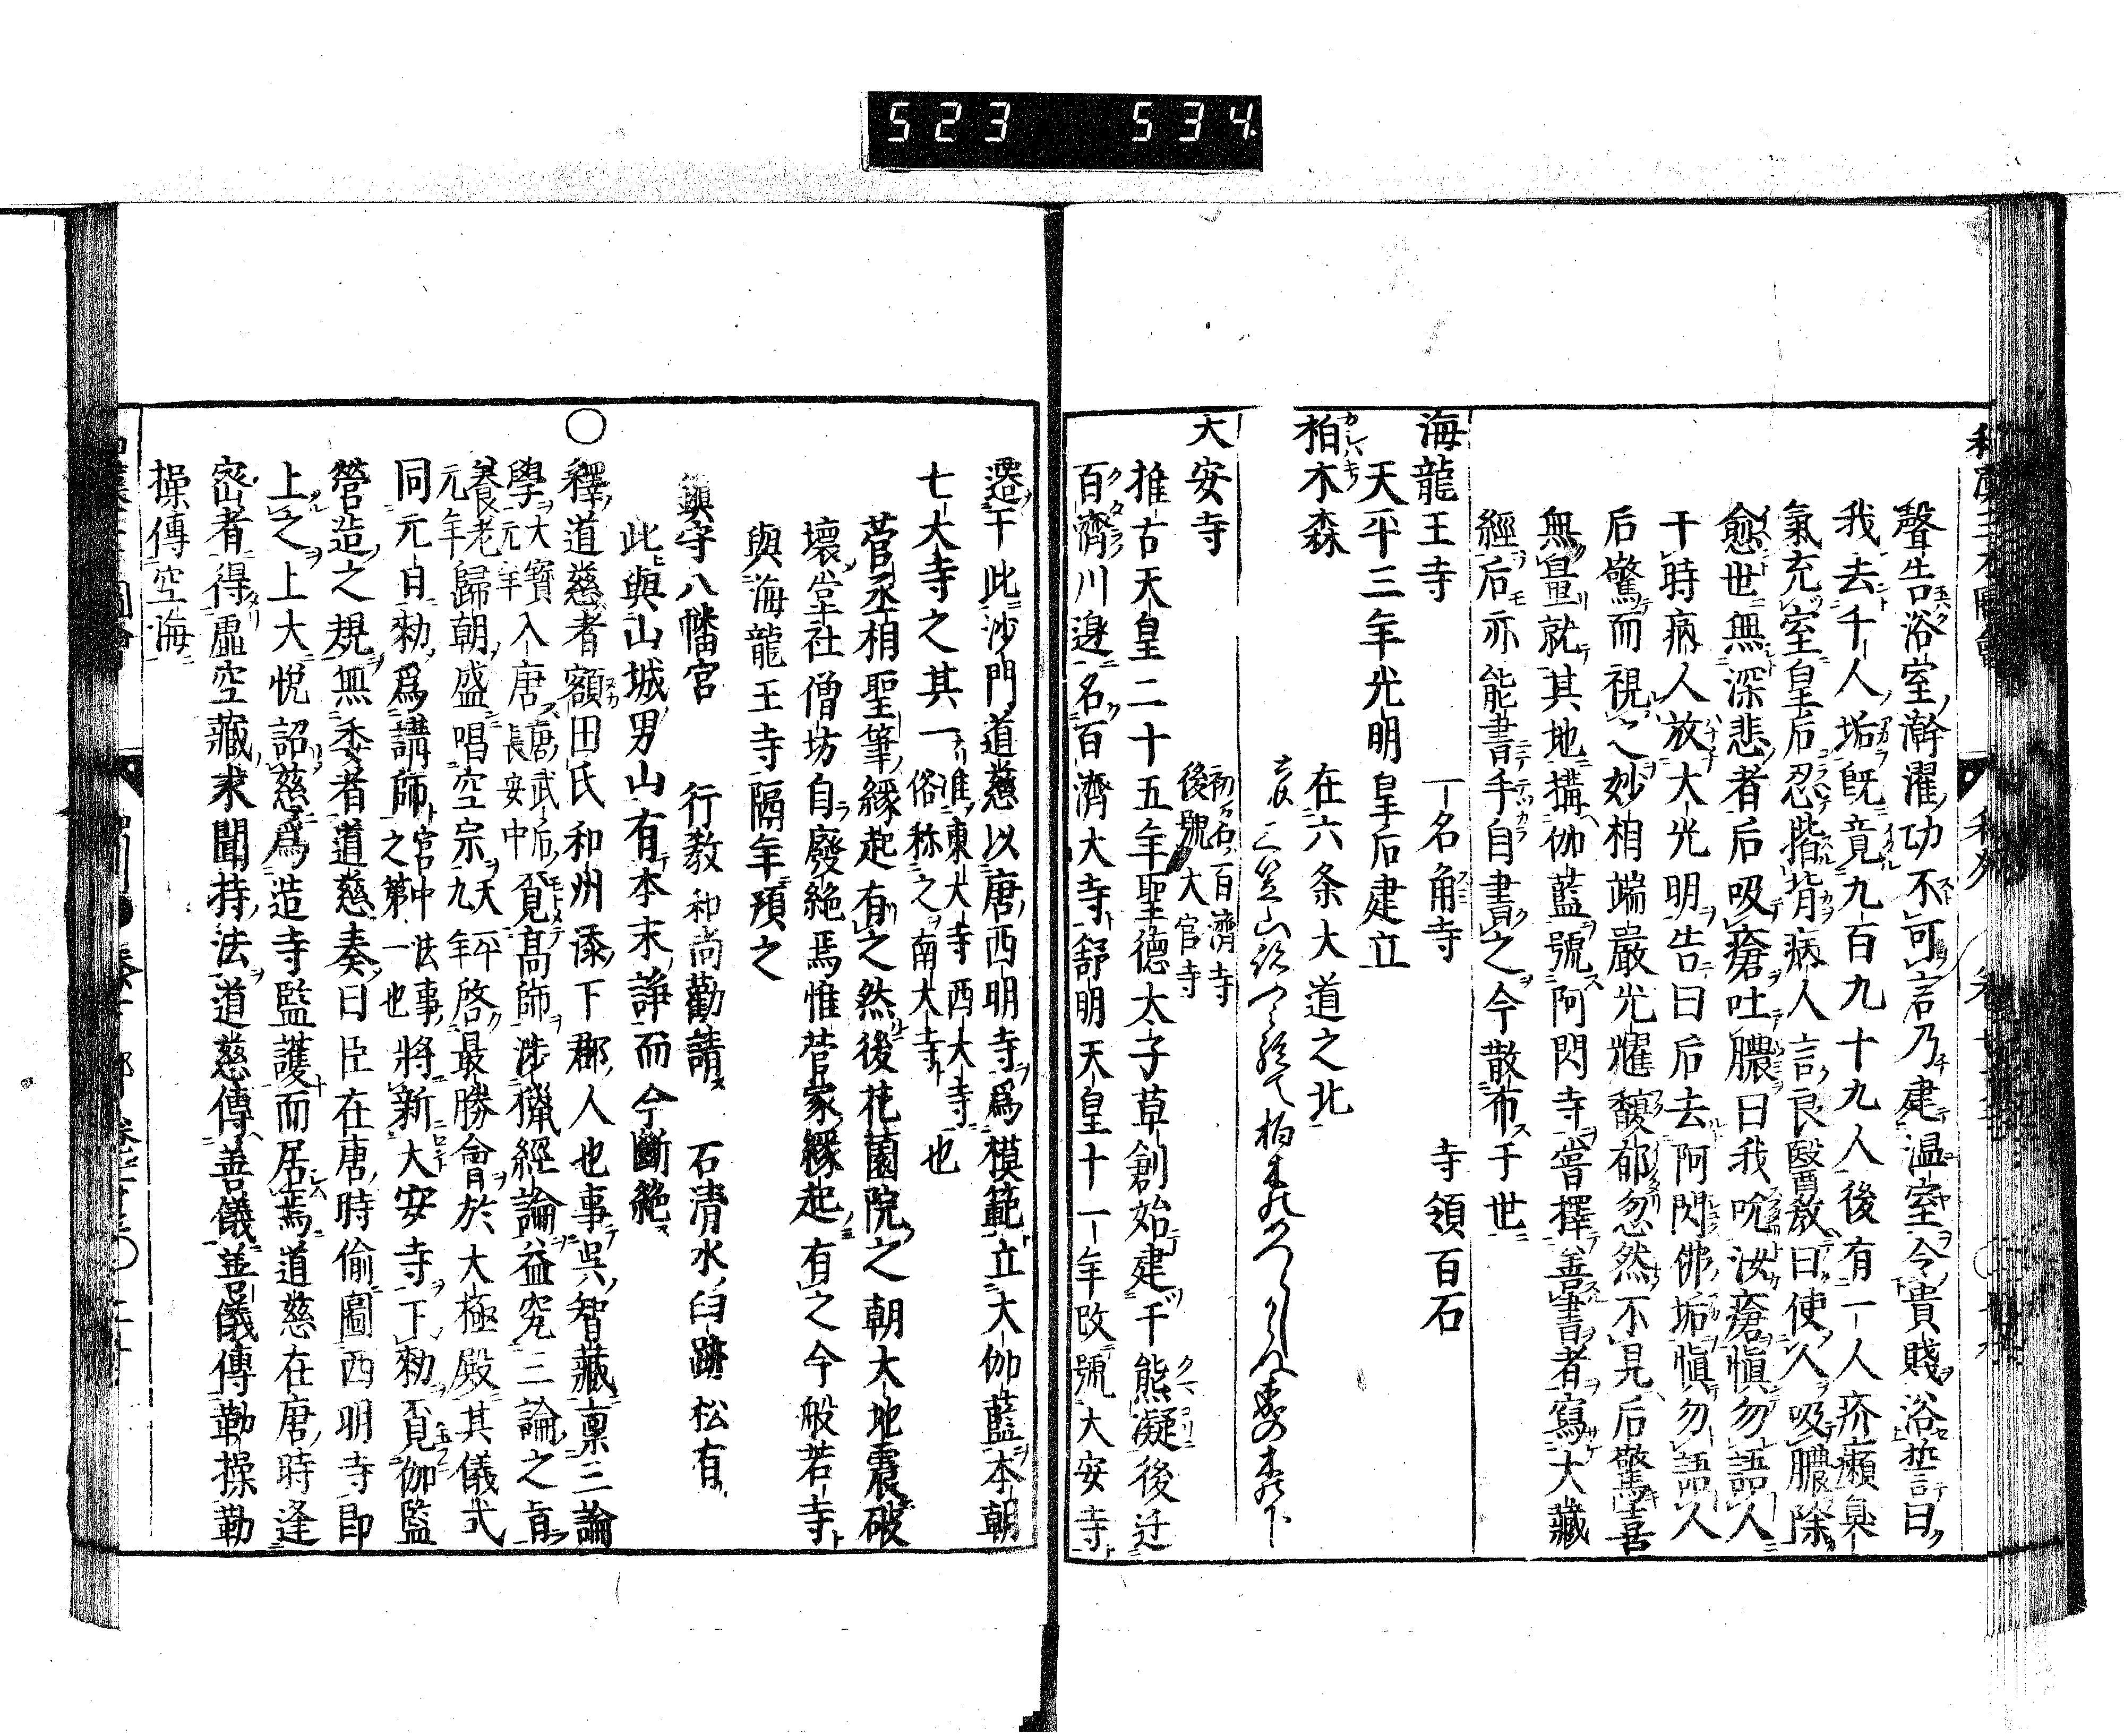 523 534.
聲告浴室澣濯功不可言乃建温室令貴賤浴誓曰
我去千人垢既竟九百九十九人後有一人疥癩臭
氣充室皇后忍揩背病人言良醫教曰使人吸膿除
愈世無深悲者后吸瘡吐膿曰我吮汝瘡愼勿語人
于時病人放大光明告曰后去阿閦佛垢愼勿語人
后驚而視之妙相端嚴光耀馥郁忽然不見后驚喜
無量就其地搆伽藍號阿閦寺嘗擇善書者寫大藏
經后亦能書手自書之今散布于世
海龍王寺 一名角寺 寺領百石
天平三年光明皇后建立
柏木森 在六条大道之北
大安寺 初名百濟寺後號大官寺
推古天皇二十五年聖德太子草創始建于熊凝後迁
百濟川邉名百濟大寺舒明天皇十一年改號大安寺
遷于此沙門道慈以唐西明寺爲模範立大伽藍本朝
七大寺之其一 准東大寺西大寺俗称之南大寺也
菅丞相聖筆縁起有之然後花薗院之朝大地震破
壞堂社僧坊自廢絶焉惟菅家縁起有之今般若寺
與海龍王寺隔年預之
鎭守八幡宮 行教和尚勸請 石清水臼跡松有
此與山城男山有本末諍而今斷絶
○釋道慈者額田氏和州添下郡人也事呉智藏禀三論
學大寶元年入唐唐武后長安中覓髙師渉獵經論益究三論之旨
養老元年歸朝盛唱空宗天平九年啓最勝會於大極殿其儀式
同元日勅爲講師宮中法事之第一也將新大安寺下勅覓伽監
營造之規無委者道慈奏曰臣在唐時偷圖西明寺卽
上之上大悦詔慈爲造寺監護而居焉道慈在唐時逢
宻者得虚空藏求聞持法道慈傳善儀善儀傳勤操勤
操傳空海